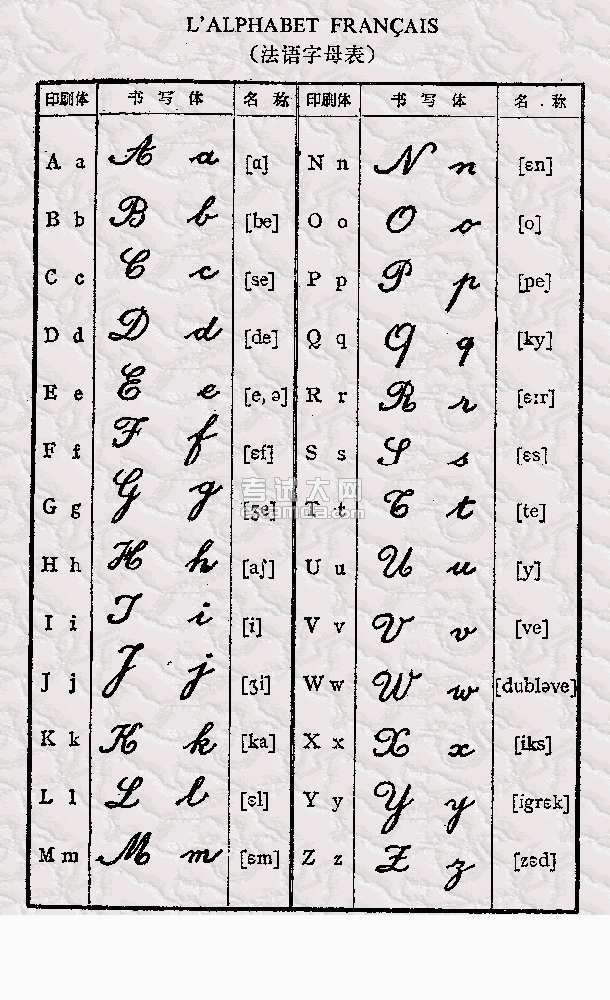 L'ALPHABET FRANÇAIS
（法语字母表）
印刷体 书写体 名称 印刷体 书写体 名.称
A a A a [ɑ] N n N n [ɛn]
B b B b [be] O o O o [o]
C c C c [se] P p P p [pe]
D d D d [de] Q q Q q [ky]
E e E e [e, ə] R r R r [ɛɪr]
F f F f [ɛf] S s S s [ɛs]
G g G g [ʒe] T t T t [te]
考试大网
examda.com
H h H h [aʃ] U u U u [y]
I i I i [i] V v V v [ve]
J j J j [ʒi] W w W w [dubləve]
K k K k [ka] X x X x [iks]
L l L l [ɛl] Y y Y y [igrɛk]
M m M m [ɛm] Z z Z z [zɛd]